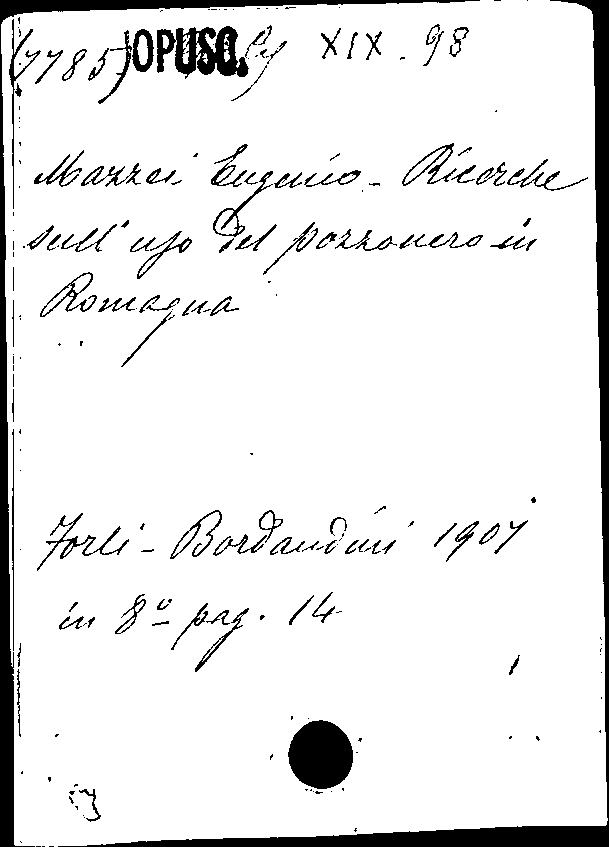 (7785) OPUSC. XIX. 98
Mazzei Eugenio - Ricerche
sull' uso del pozzonero in
Romagna
Forlì - Bordandini 1907
in 8º pag. 14